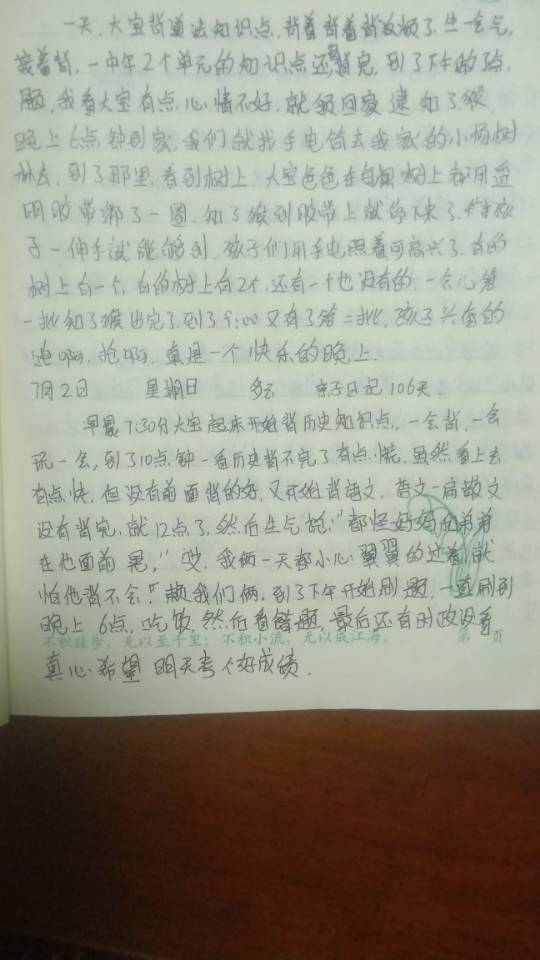 一天，大宝背道法知识点，背着背着背放烦了，生一会气，
接着背，一中午2个单元的知识点还没背完，到了下午的3点，
题，我看大宝有点心情不好，就领回家逮知了猴，
晚上6点钟到家，我们就找手电筒去我家的小杨树
林去，到了那里，看到树上，大宝爸爸在每棵树上都用透
明胶带绑了一圈，知了猴到胶带上就停下来了，孩
子一伸手就能够到，孩子们用手电照着可高兴了，有的
树上有一个，有的树上有2个，还有一个也没有的，一会儿第
一批知了猴出完了，到了9:00又有了第二批，孩子兴奋的
跑啊，抢啊，真是一个快乐的晚上．
7月2日 星期日 多云 亲子日记106天．
早晨7:30分大宝起床开始背历史知识点，一会背，一会
玩一会，到了10点钟一看历史背不完了有点慌，虽然看上去
有点快，但没有前面背的好，又开始背语文，语文一篇散文
没有背完，就12点了，然后生气说：“都怪妈妈和弟弟
在他面前晃，”哎，我俩一天都小心翼翼的过着，就
怕他背不会！赖我们俩，到了下午开始刷题，一直刷到
晚上6点，吃饭，然后看错题，最后还有时政没看
不积跬步，无以至千里；不积小流，无以成江海。 第 页
真心希望明天考个好成绩．